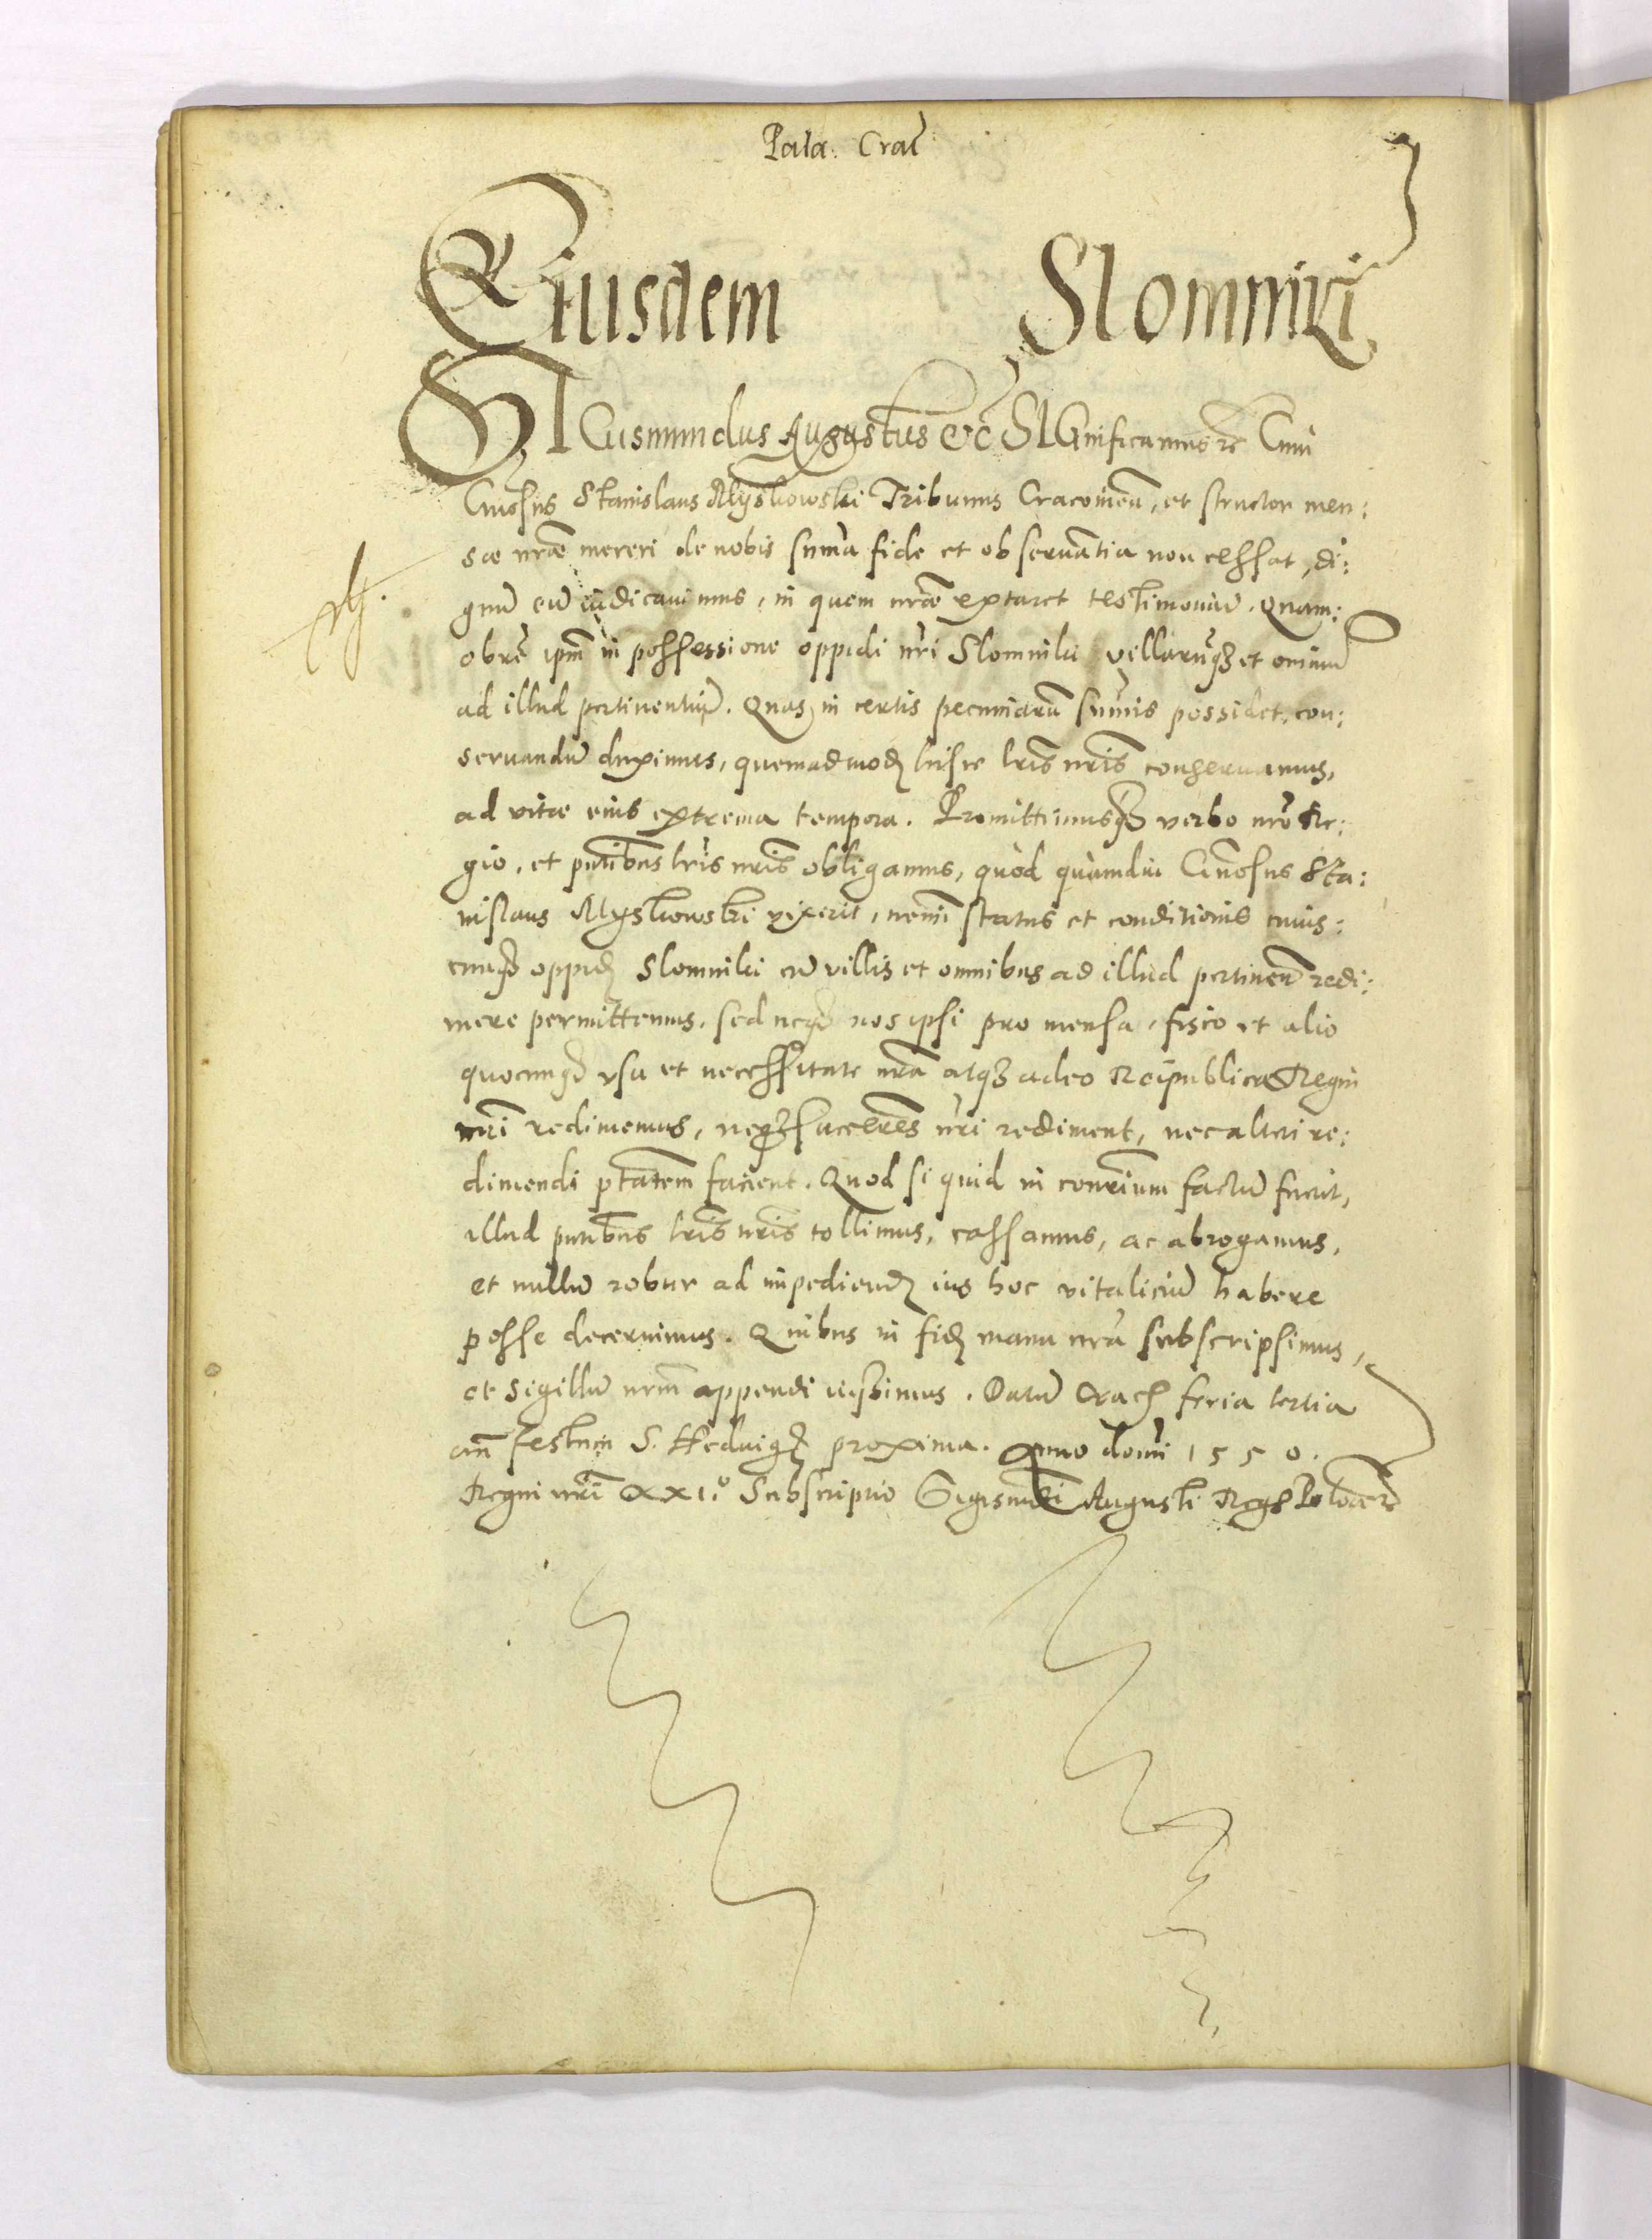 Pala: Cra͞c
Eiusdem Slomniki
SIGismundus Augustus &c SIGnificamus &c Cum
G͞nosus Stanislaus Myskowski Tribunus Cracovien͞, et structor men:
sæ n͞ræ mereri de nobis sum̄a fide et observātia non cessat, di:
gnū eū iudicavimus, in quem n͞ræ extaret testimoniū. Quam:
obrē ip͞m in possessione oppidi n͞ri Slomniki villarūq3 et om̄iū
ad illud pertinentiū. Quas in certis pecuniarū sum̄is possidet, con:
servandū duximus, quemadmodȝ hisce l͞ris n͞ris conservamus,
ad vitæ eius extrema tempora. Promittimusq3 verbo n͞ro Re:
gio, et pn͞tibus l͞ris n͞ris obligamus, quòd quàmdiu G͞nosus Sta:
nislaus Myskowski vixerit, nemi͞ status et conditionis cuius:
cunq3 oppidȝ Slomniki cū villis et omnibus ad illud pertinen͞ redi:
mere permittemus, sed neq3 nos ipsi pro mensa, fisco et alio
quocunq3 usu et necessitate n͞ra atq3 adeo Reipublicæ Regni
n͞ri redimemus, neq3 succes͞res n͞ri rediment, nec alteri re:
dimendi p͞tatem facient. Quod si quid in con͞rium factū fuerit,
illud pn͞tibus l͞ris n͞ris tollimus, cassamus, ac abrogamus,
et nullū robur ad impediendȝ ius hoc vitaliciū habere
posse decernimus. Quibus in fidȝ manu n͞ra subscripsimus,
et sigillū n͞rm appendi iussimus. Datū Cracȝ feria tertia
an͞ festum S. Hedvigȝ proxima. Anno domi͞ 1550.
Regni n͞ri XXI.º Subscriptio Sigismu͞di Augusti Regȝ Poloniæ